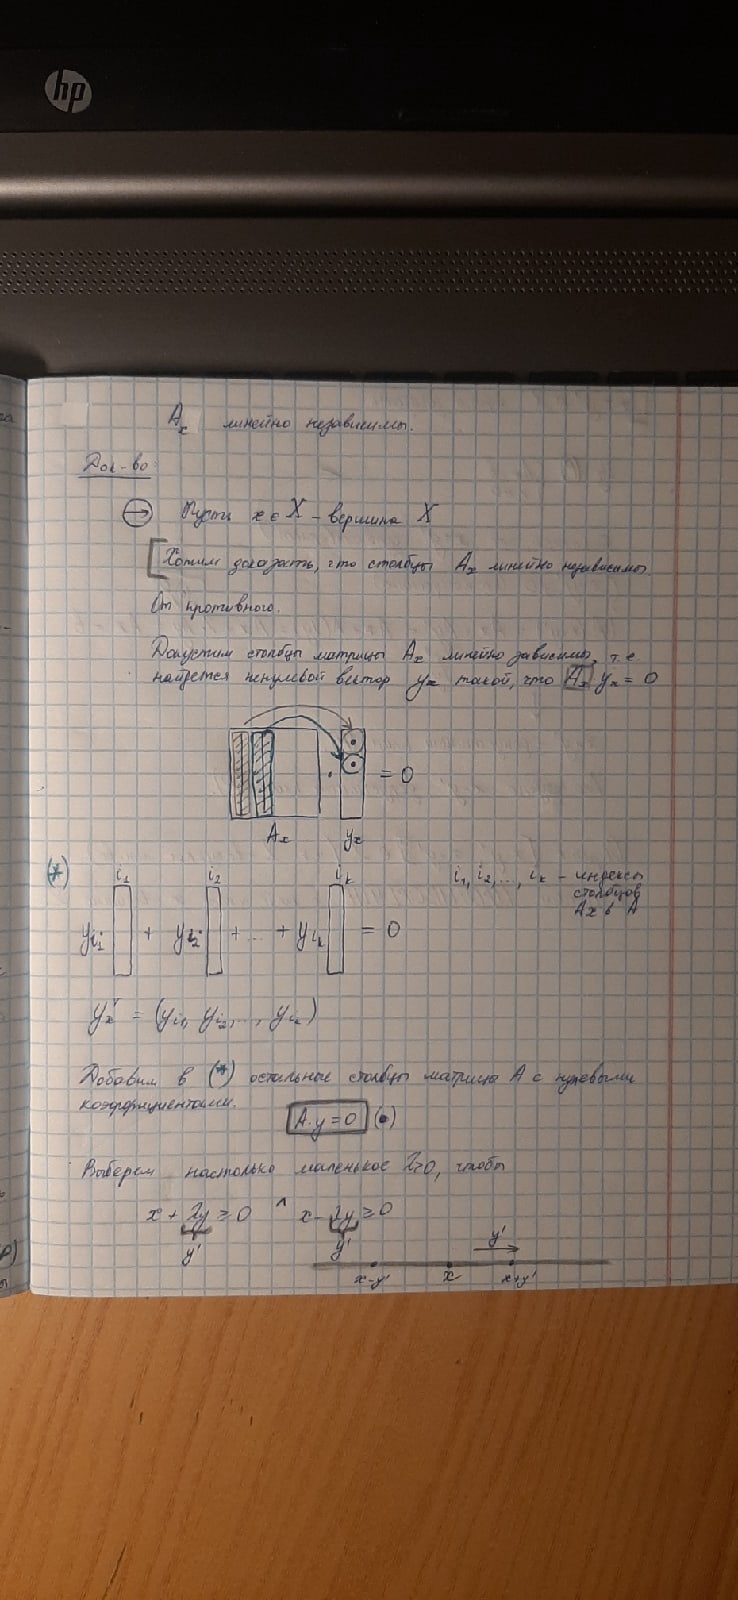 hp
Aₓ линейно независимы.
Док-во:
→ Пусть x ∈ X – вершина X
[Хотим доказать, что столбцы Aₓ линейно независимы.
От противного.
Допустим столбцы матрицы Aₓ линейно зависимы, т.е.
найдется ненулевой вектор yₓ такой, что Aₓ yₓ = 0
· = 0
Aₓ yₓ
(*) i₁ i₂ iₖ i₁, i₂, ..., iₖ – индексы
столбцов
Aₓ в A
yᵢ₁ + yᵢ₂ + ... + yᵢₖ = 0
yₓ = (yᵢ₁, yᵢ₂, ..., yᵢₖ)
Добавим в (*) остальные столбцы матрицы A с нулевыми
коэффициентами.
A·y = 0 (•)
Выберем настолько маленькое λ>0, чтобы
x + λy ≥ 0 ^ x - λy ≥ 0
y' y' y'
x-y' x x+y'